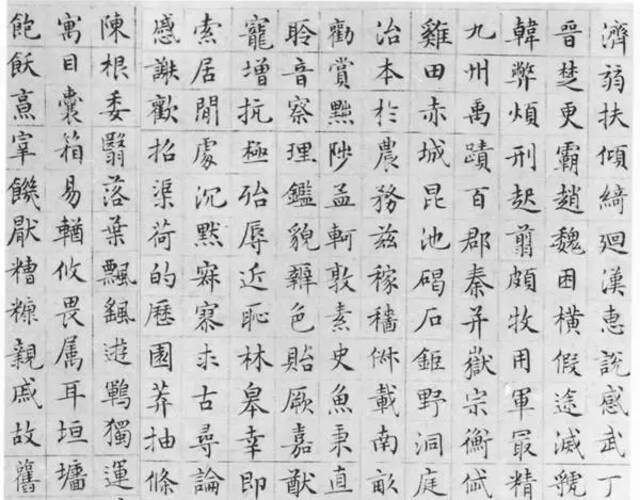 濟弱扶傾綺迴漢惠說感武丁
晉楚更霸趙魏困橫假途滅虢
韓弊煩刑起翦頗牧用軍最精
九州禹蹟百郡秦并嶽宗衡岱
雞田赤城昆池碣石鉅野洞庭
治本於農務茲稼穡俶載南畝
勸賞黜陟孟軻敦素史魚秉直
聆音察理鑑貌辨色貽厥嘉猷
寵增抗極殆辱近恥林皋幸即
索居閒處沉默寂寥求古尋論
慼謝歡招渠荷的歷園莽抽條
陳根委翳落葉飄颻遊鵾獨運
寓目囊箱易輶攸畏属耳垣墻
飽飫烹宰饑厭糟糠親戚故舊